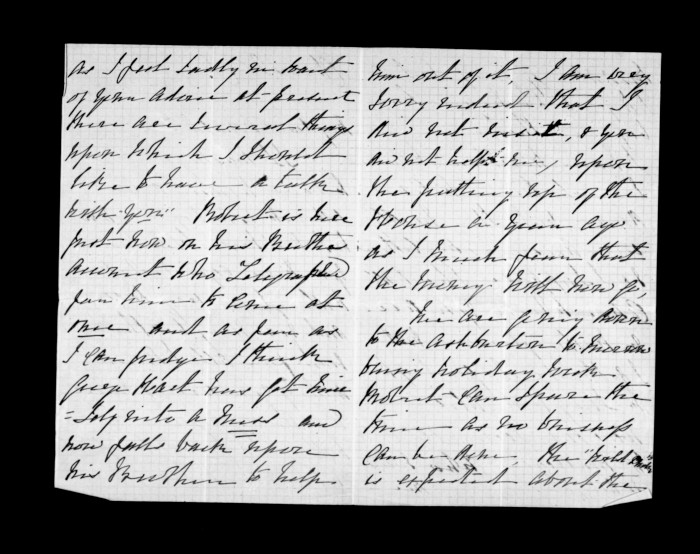 as I feel sadly in want
of your advice at present
there are several things
upon which I should
like to have a talk
with you Robert is here
just now on his Brothers
account who Telegraphed
for him to come at
once and as far as
I can judge I think
George Hart has got him
=self into a mess and
now falls back upon
his Brother to help
him out of it, I am very
sorry indeed that I
did not insist, & you
did not help me, upon
the putting up of the
House a year ago
as I much fear that
the money will now go,
We are going down
to the Ashburton tomorrow
being holiday week
Robert can spare the
time as no business
can be done, the
is expected about the